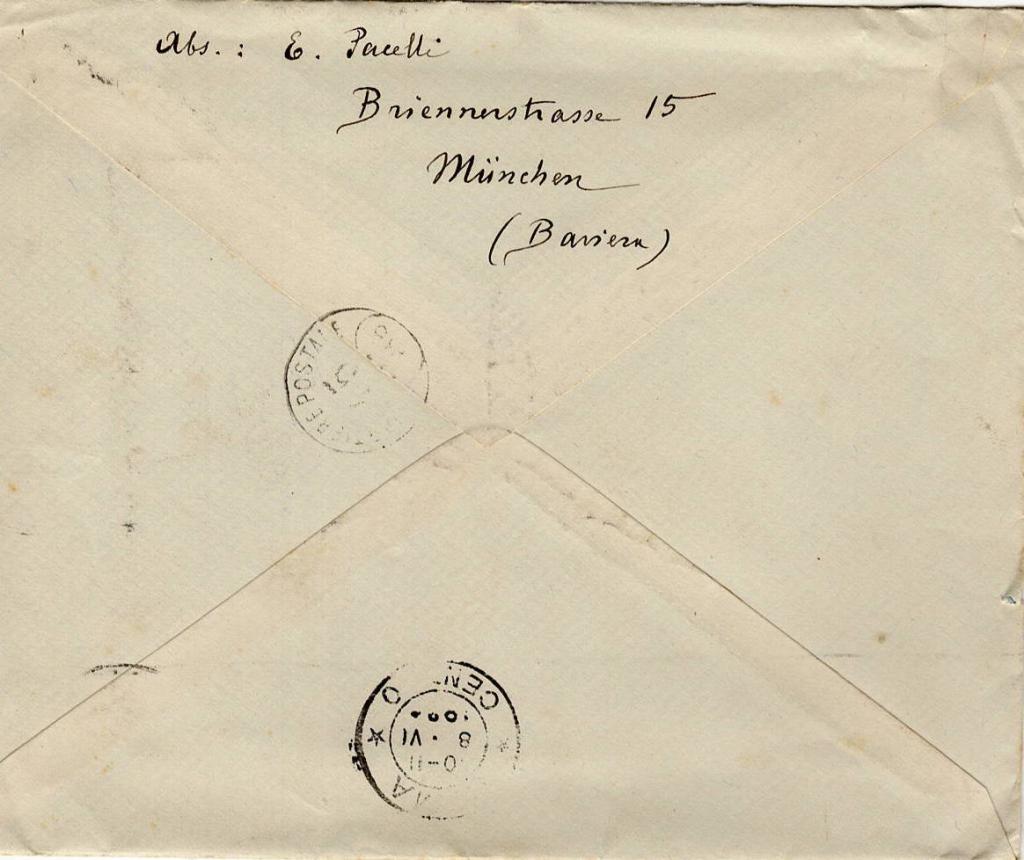 Abs. : E. Pacelli
Briennerstrasse 15
München
(Baviera)
POSTALE
CEN O
8 · VI